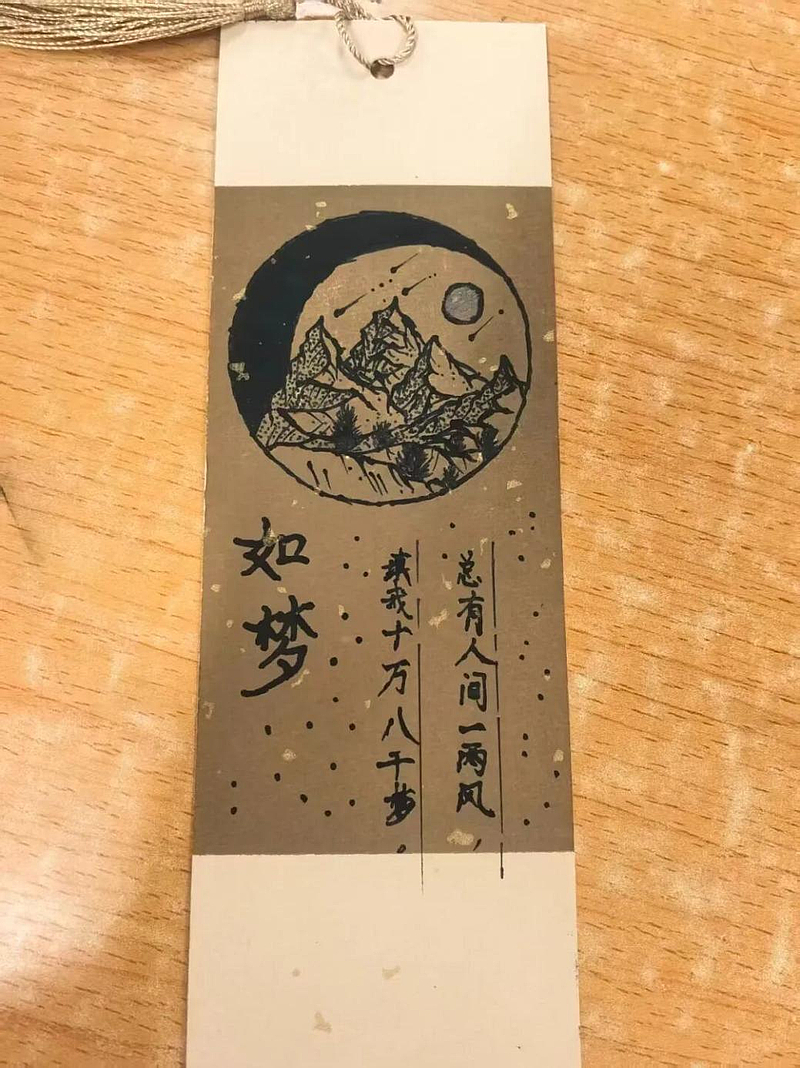 总有人间一两风，
填我十万八千梦。
如梦